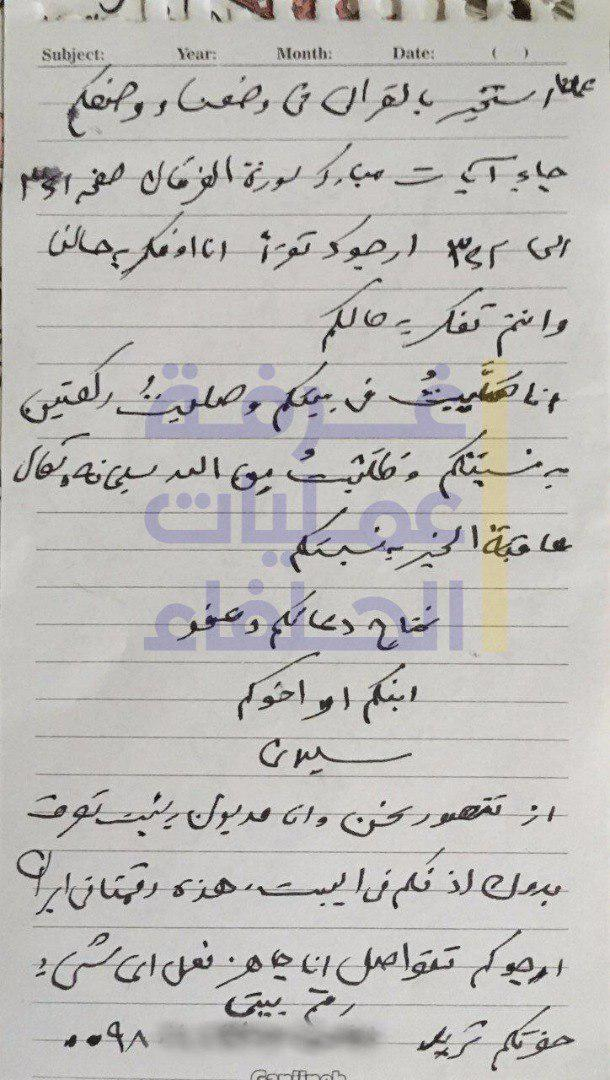 Subject: Year: Month: Date: ( )
استخير بالقرآن في وضعنا و وضعكم
جاء آيات مبارك سورة الفرقان صفحه ٣٦١
الى ارجوك تقرأ انا افكر به حالنا
وانتم تفكر به حالكم
انا صَلَّيتُ في بيتكم وصليتُ ركعتين
به نسبتكم وطَلَبتُ من الله سبحانه وتعالى
عاقبة الخير به نسبتكم
نحتاج دعائكم وعفو
ابنكم او اخوكم
سليماني
از تتصور نحن وانا مديون
بدون اذنكم في البيت، هذه رقمنا في ايران
ارجوكم تتواصل انا جاهز نفعل اي شيء
رقم بيتي
حضرتكم تريد ٠٠٩٨
غرفة
عمليات
الحلفاء